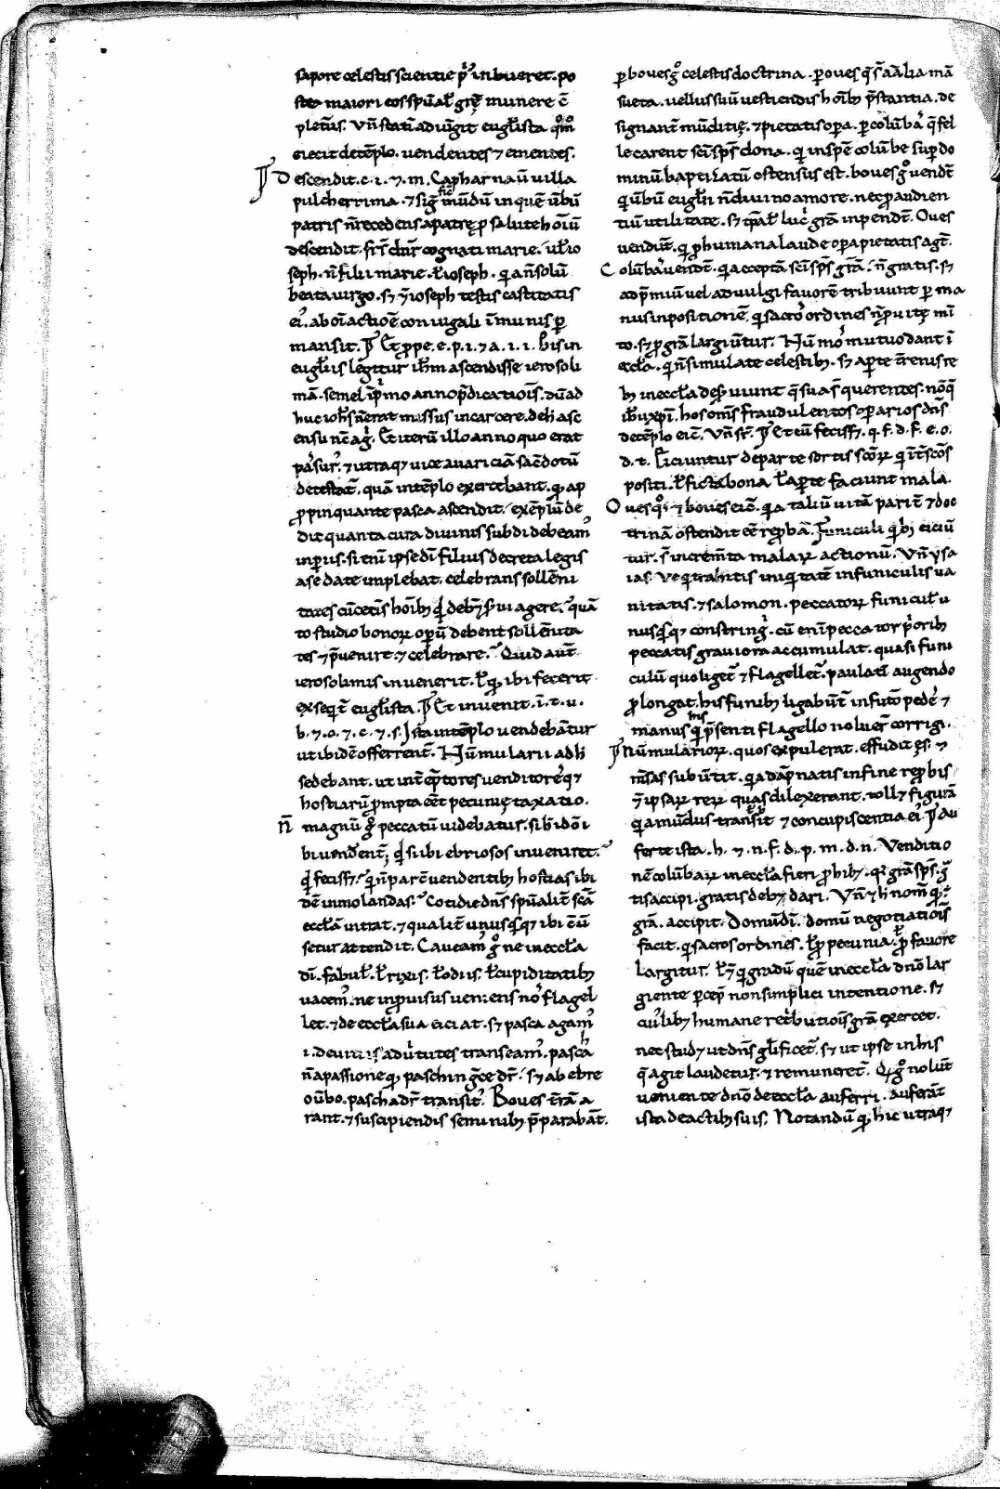 sapore celestis scientie p᷒ inbueret. po
stea maiori eos sp̅ual̅ gr̅e munere c̅
pletu̅s. Vn̅ stati̅ adiu̅git eugl̅ista q̅m̅
eiecit de te̅plo. uendentes ⁊ ementes.
Descendit. c. i. ⁊. m. Capharnau̅ uilla
pulcherrima. ⁊ sig̅ mu̅du̅ in que̅ u̅bu̅
patris n̅ recedens a patre ꝓ salute ho̅iu̅
descendit. fr̅s cogn̅ati marie. ul̅ io
seph. n̅ filii marie. l̅ ioseph. q̅a n̅ solu̅
beata uirgo. sꝫ ⁊ ioseph testis castitatis
ei᷒. ab o̅i actio̅e coniugali i̅munis ꝑ
mansit. Et ꝓpe. e. p. i. ⁊ a. i. i. bis in
eugl̅iis legitur ih̅m ascendisse ierosoli
ma̅. semel i̅ p̅mo anno p̅dicatio̅is. du̅ ad
huc ioh̅s n̅ erat missus in carcere. de h᷒ asc
ensu n̅c ag̅. Et iteru̅ illo anno quo erat
passur᷒. ⁊ utraqꝫ uice auaricia̅ sac̅dotu̅
detestat̅. qua̅ in te̅plo exercebant. q̅ ap
propinquante pasca ascendit. exe̅plu̅ de
dit quanta cura diuinis subdi debeam᷒
inperiis. si eni̅ ipse di̅ filius decreta legis
a se date implebat. celebrans solle̅ni
tates cu̅ cet̅is ho̅ibꝫ q̅d deb̅t s̅ui agere. qua̅
to studio bonoꝝ operu̅ debent solle̅nita
tes ⁊ p̅uenire. ⁊ celebrare. Quid aut̅
ierosolimis inuenerit. l̅ q̅d ibi fecerit
exseq̅t̅ eugl̅ista. Et inuenit. i. t. u.
b. ⁊. o. ⁊. c. ⁊. s. Ista in te̅plo uendeba̅tur
ut ibide̅ offerrent̅. Nu̅mularii ad h᷒
sedebant. ut int̅ e̅ptores uenditores qꝫ
hostiaru̅ ꝓmpta e̅et pecunie taxatio.
n̅ magnu̅ g᷒ peccatu̅ uidebatur. si b̅ ido̅ i
bi uendent̅. q̅d si ibi ebriosos inueniret.
q̅d feciss̅. q̅ n̅ parc̅ uendentibꝫ hostias ibi
de̅ inmolandas. Cotidie dn̅s sp̅ualit̅ sc̅a̅
eccl̅a̅ intrat. ⁊ qualit̅ unus qꝫ ibi c̅u̅
setur attendit. Caueam᷒ g᷒ ne in eccl̅a
di̅. fabul̅. l̅ rixis. l̅ odiis. l̅ cupiditatibꝫ
uacem᷒. ne inprouisus ueniens nos flagel
let. ⁊ de eccl̅a sua eiciat. sꝫ pasca agam᷒
.i. de uitiis ad u̅tutes transeam᷒. pascha
n̅ a passione q̅ paschin g̅ce dr̅. sꝫ ab ebre
o u̅bo. pascha dr̅ transit᷒. Boues t̅ra̅ a
rant. ⁊ suscipiendis seminibꝫ p̅parabant̅.
ꝑ boues g᷒ celestis doctrina. ꝑ oues q̅ s̅t a̅i̅alia ma̅
sueta. uellus suu̅ uestiendis ho̅ibꝫ p̅stantia. de
signant̅ mu̅ditie. ⁊ pietatis opera. ꝑ colu̅ba᷒ q̅ fel
le carent sc̅i sp̅s dona. q̅ in spe̅ colu̅be sup̅ do
minu̅ baptizatu̅ ostensus est. boues g᷒ uendt̅
q̅ u̅bu̅ eugl̅ii n̅ diuino amore. nec ꝓ audien
tiu̅ utilitate. sꝫ te̅pal̅ luc᷒ gr̅a inpendt̅. Oues
uendu̅t. q̅ ꝓ humana laude opera pietatis agt̅.
Colu̅ba᷒ uendt̅. q̅ accepta̅ sc̅i sp̅s gr̅a̅. n̅ gratis. sꝫ
ad p̅miu̅ uel ad uulgi fauore̅ tribuunt ꝑ ma
nus inpositione̅. q̅ sacro᷒ ordines n̅ ꝓ uite m̅i
to. sꝫ ꝓ gr̅a largiu̅tur. Nu̅mo᷒ mutuo dant i̅
eccl̅a. q̅ n̅ simulate celestibꝫ. sꝫ aperte t̅renis re
bꝫ in eccl̅a des̅uiunt q̅ sua s̅t querentes. no̅ q̅
ih̅u xp̅i. hos om̅s fraudulentos operarios dn̅s
de te̅plo eic̅. Vn̅ s̅r. Et cu̅ feciss̅. q. f. d. f. e. o.
d. t. Eiciuntur de parte sortis sc̅oꝝ q̅ int̅ sc̅os
positi. l̅ ficta bona. l̅ aperte faciunt mala.
Oues q᷒qꝫ ⁊ boues eic̅. q̅a taliu̅ uita̅ parit̅ ⁊ doc
trina̅ ostendit e̅e reproba̅. Funiculi q̅bꝫ eiciu̅
tur. s̅t increm̅ta malaꝝ actionu̅. Vn̅ ysa
ias. Ve q̅ trahitis iniq̅tate̅ in funiculis ua
nitatis. ⁊ salomon. peccatoꝝ funicul᷒ u
nusq̅sqꝫ constringit᷒. cu̅ eni̅ peccator p̅oribꝫ
peccatis grauiora accumulat. quasi funi
culu̅ quo liget̅ ⁊ flagellet̅. paulati̅ augendo
ꝓlongat. his funibꝫ ligabu̅t̅ in futo̅ pede᷒ ⁊
manus q̅ p̅senti flagello noluer̅ corrigi.
Nu̅mularioꝝ. quos expulerat. effudit es. ⁊
me̅sas subu̅tit. q̅a da̅pnatis in fine reprobis
⁊ ipsaꝝ reꝝ quas dilexerant. tollꝫ figura̅
q̅a mu̅dus transit ⁊ concupiscentia ei᷒. Au
ferte ista. h. ⁊. n. f. d. p. m. d. n. Venditio
ne̅ colu̅baꝝ in eccl̅a fieri ꝓhibꝫ. q̅ gr̅a sp̅s. g̅
tis accipi. gratis debꝫ dari. Vn̅ ⁊ h̅ nom̅ q̅.
gr̅a. accipit. Domu̅ di̅. domu̅ negotiatio̅is
facit. q̅ sacros ordines. l̅ ꝓ pecunia. l̅ ꝓ fauore
largitur. l̅ ⁊ q̅ gradu̅ que̅ in eccl̅a dn̅o lar
giente ꝑcep̅ non simplici intentione. sꝫ
cui᷒libꝫ humane ret̅butio̅is gr̅a exercet.
nec studꝫ ut dn̅s gl̅ificet̅. sꝫ ut ipse in his
q̅ agit laudetur. ⁊ remuneret̅. Q̅ g᷒ nolu̅t
ueniente dn̅o de eccl̅a auferri. aufera̅t
ista de actibꝫ suis. Notandu̅ q̅ hic utraqꝫ